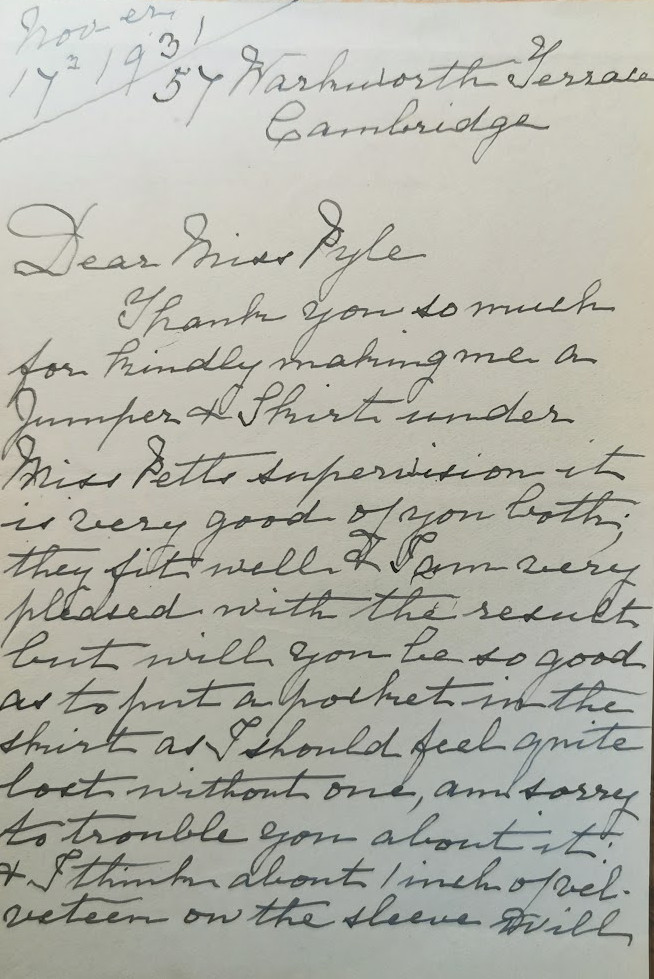 Nov er
17th 1931
57 Warkworth Terrace
Cambridge
Dear Miss Pyle
Thank you so much
for kindly making me a
Jumper & Skirt under
Miss Petts supervision it
is very good of you both;
they fit well & I am very
pleased with the result
but will you be so good
as to put a pocket in the
skirt as I should feel quite
lost without one, am sorry
to trouble you about it.
& I think about 1 inch of vel-
veteen on the sleeve will